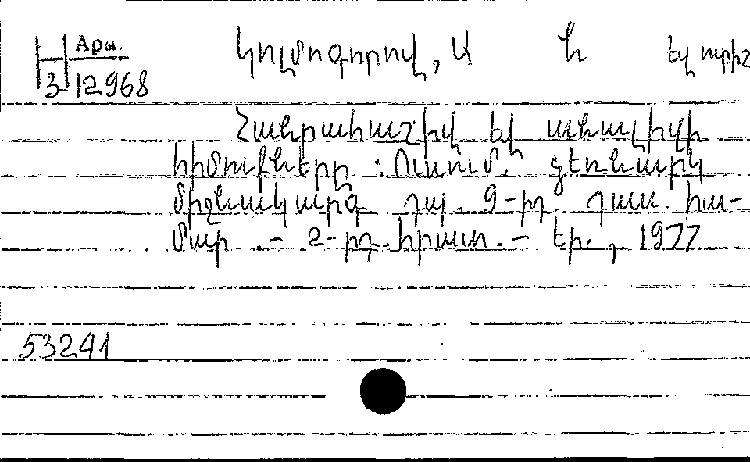 Արտ.
3 12968
Կոլմոգորով, Ա Ն եվ ուրիշ
Հանրահաշիվ եվ անալիզի
հիմունքները : Ուսում. ձեռնարկ
միջնակարգ դպ. 9-րդ դաս. հա-
մար .- 2-րդ հրատ. - Եր., 1977
53291